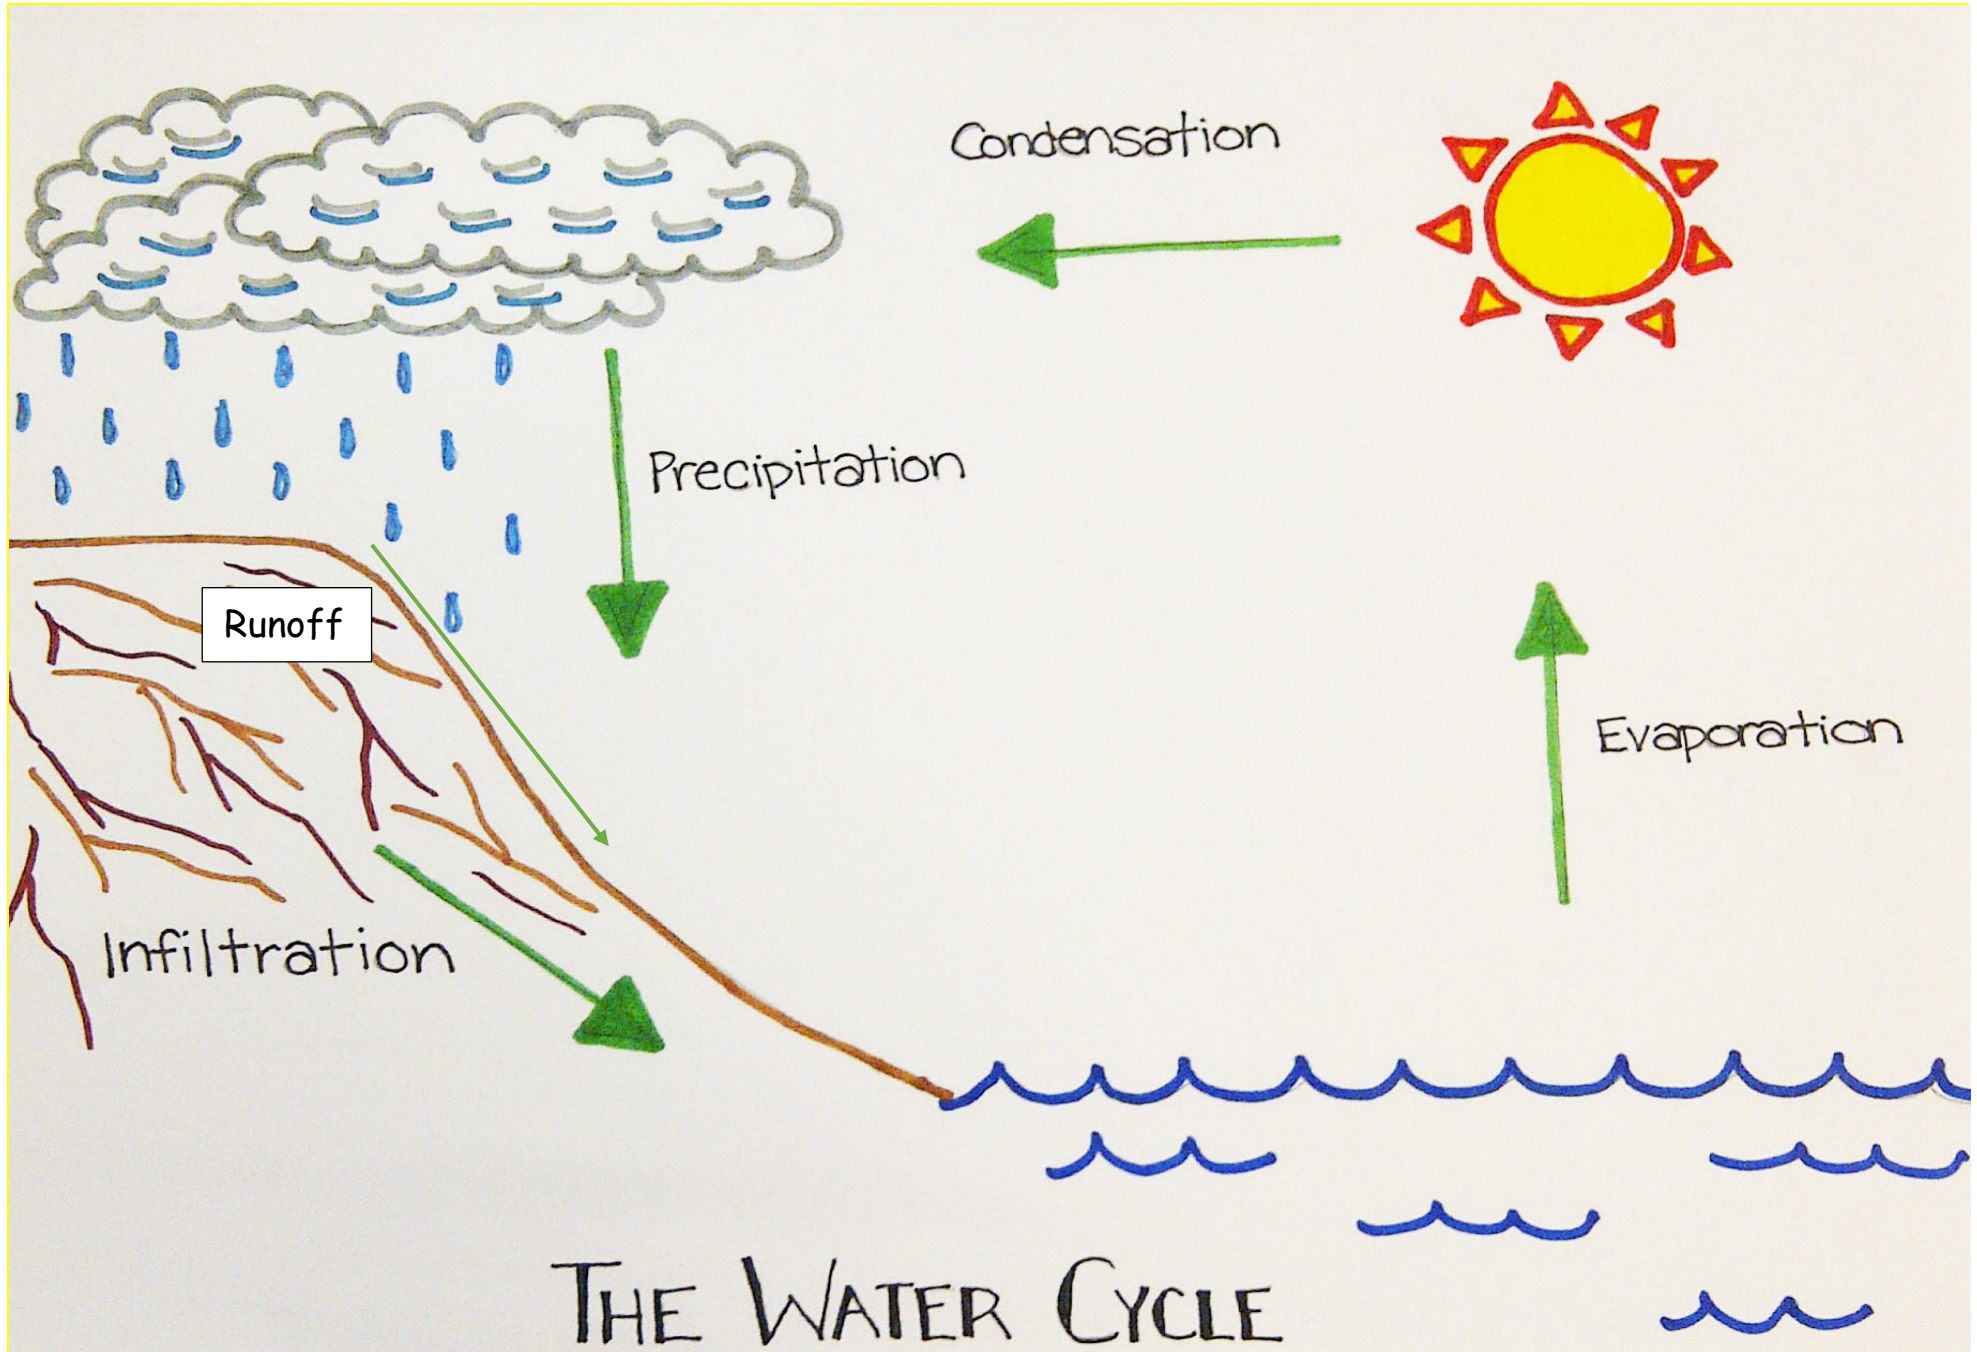 Condensation
Precipitation
Runoff
Evaporation
Infiltration
THE WATER CYCLE